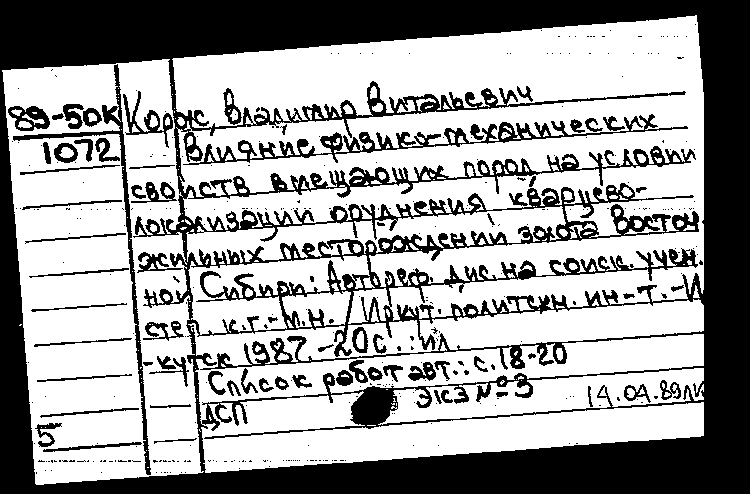 89-50К Корж, Владимир Витальевич
1072 Влияние физико-механических
свойств вмещающих пород на условия
локализации оруднения кварцево-
жильных месторождений золота Восточ-
ной Сибири: Автореф. дис. на соиск. учен.
степ. к.г.-м.н. / Иркут. политехн. ин-т.-И
-кутск 1987.-20с.:ил.
Список работ авт.: с.18-20
ДСП экз №3 14.04.89
5